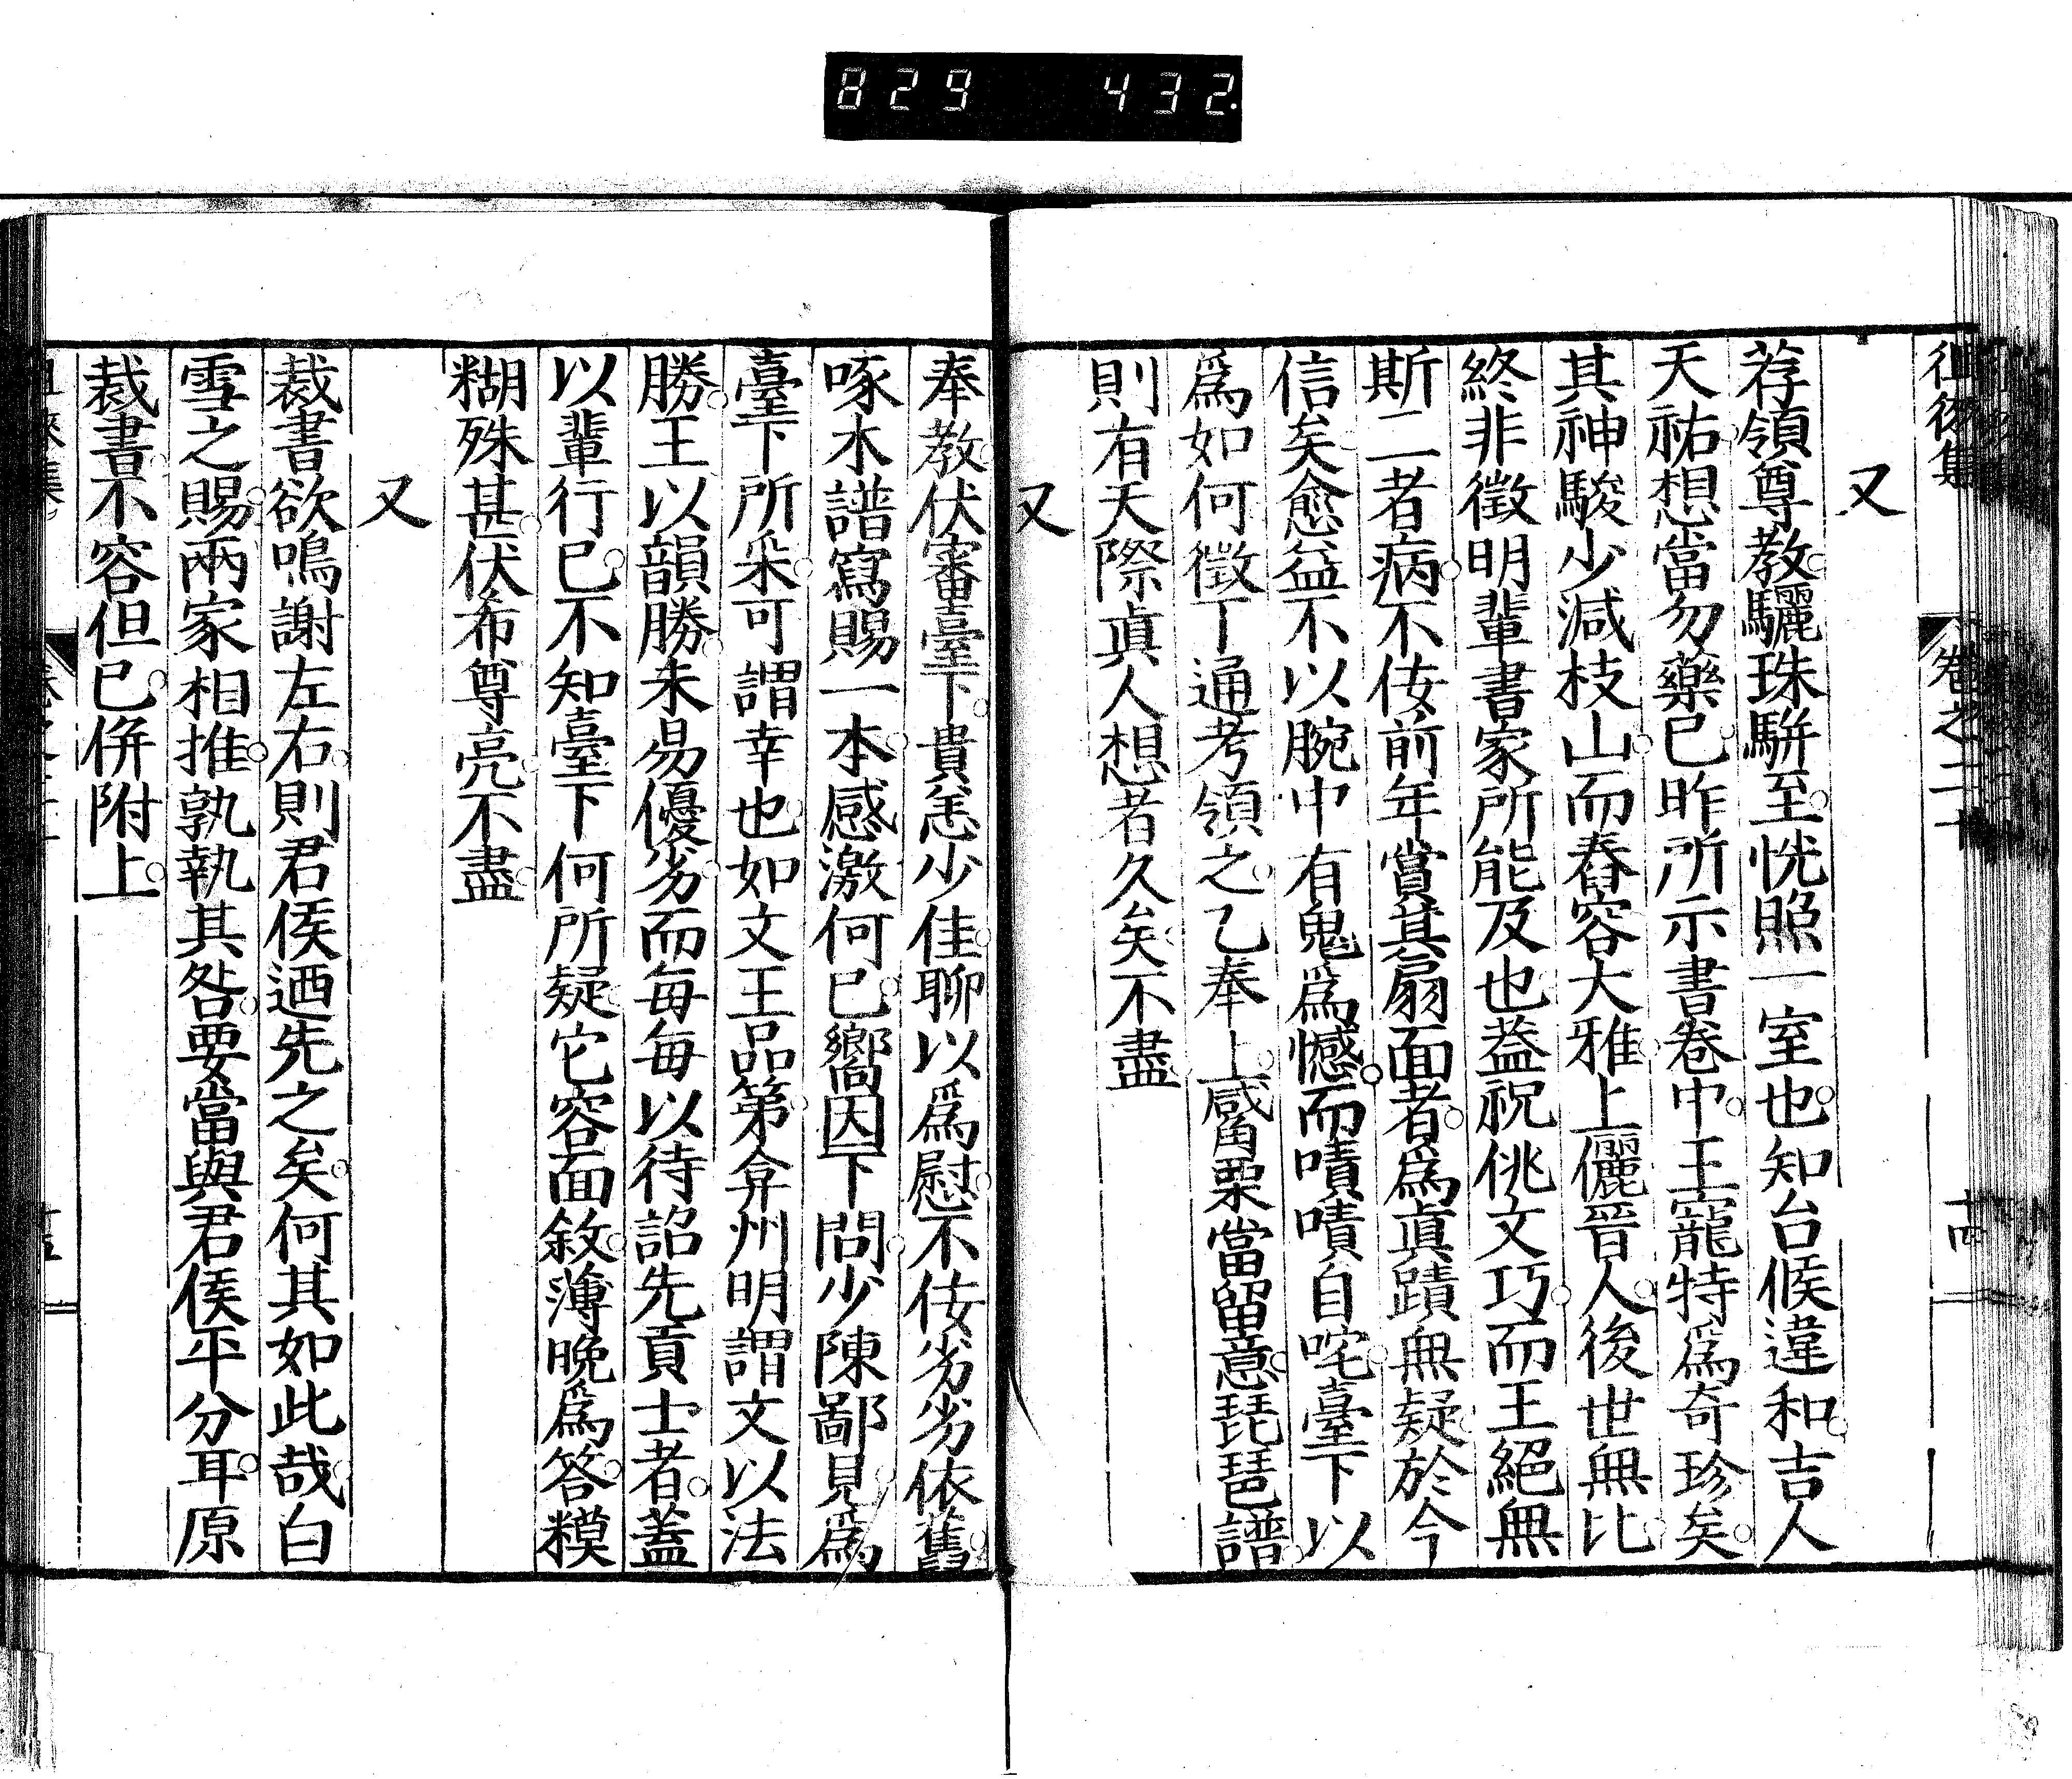 829 432
徂徠集 卷之二十 十四
又
荐領尊教驪珠駢至恍照一室也知台候違和吉人
天祐想當勿藥已昨所示書卷中王寵特爲奇珍矣
其神駿少減枝山而舂容大雅上儷晉人後世無比
終非徵明輩書家所能及也葢祝佻文巧而王絕無
斯二者病不佞前年賞其扇面者爲眞蹟無疑於今
信矣愈益不以腕中有鬼爲憾而嘖嘖自咤臺下以
爲如何徵丁通考領之乙奉上觱栗當留意琵琶譜
則有天際眞人想者久矣不盡
又
奉教伏審臺下貴恙少佳聊以爲慰不佞劣劣依舊
啄木譜寫賜一本感激何已嚮因下問少陳鄙見爲
臺下所采可謂幸也如文王品第弇州明謂文以法
勝王以韻勝未易優劣而每每以待詔先貢士者蓋
以輩行已不知臺下何所疑它容面敘薄晚爲答糢
糊殊甚伏希尊亮不盡
又
裁書欲鳴謝左右則君侯迺先之矣何其如此哉白
雪之賜兩家相推孰執其咎要當與君侯平分耳原
裁書不容但已併附上